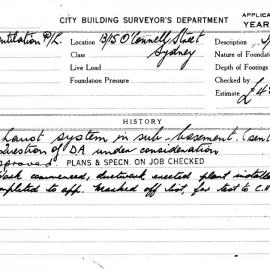 CITY BUILDING SURVEYOR'S DEPARTMENT
APPLICA
YEAR
entilation P/L.
Location 13/15 O'Connell Street
Sydney
Description
Class
Nature of Foundation
Live Load
Depth of Footings
Foundation Pressure
Checked by
Estimate £4
HISTORY
haust system in sub-basement. (sent
Question of DA under consideration
pproved
PLANS & SPECN. ON JOB CHECKED
Work commenced, ductwork erected plant installe
mpleted to app. Marked off list, for test to C.H